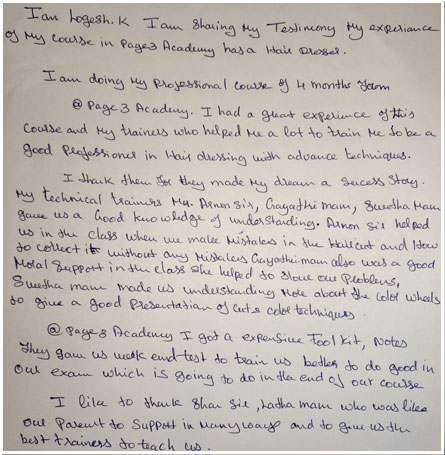 I am Logesh.K I am sharing My Testimony My experiance
of My Course in Page3 Academy has a Hair Dresser.
I am doing My Professional Course of 4 months from
@ Page 3 Academy. I had a great experience of this
Course and My trainers who helped Me a lot to train Me to be a
good Professioner in Hair dressing with advance techniques.
I thank them for they made My dream a Sucess Story.
My technical trainers Mr. Arnon Sir, Gayathi mam, Swetha Mam
gave us a Good knowledge of understanding. Arnon Sir helped
us in the class when we make Mistakes in the Haircut and How
to collect it without any Mistakes Gayathi mam also was a good
Moral Support in the class she helped to slove our Problems,
Swetha mam made us understanding More about the color wheels
to give a good Presentation of Cuts & color techniques.
@ Page 3 Academy I got a expensive Tool kit, Notes
They gave us week end test to train us better to do good in
our exam which is going to do in the end of our course
I like to thank Shan Sir, Latha mam who was like
our Parent to Support in Many ways and to give us the
best trainers to teach us.